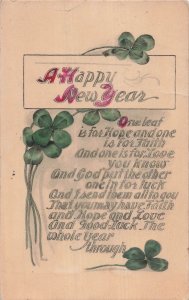 A Happy
New Year
One leaf
is for Hope and one
is for Faith
And one is for Love
you know
And God put the other
one in for luck
And I send them all to you
That you may have Faith
and Hope and Love
And Good Luck The
whole Year
through